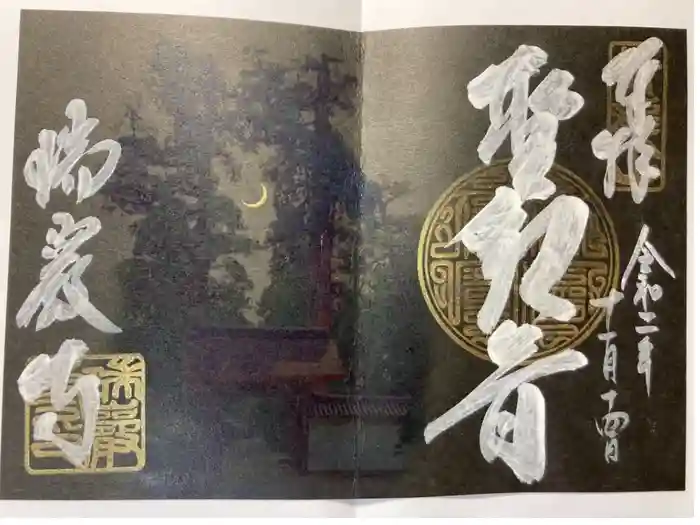 奉拝
令和二年
十一月十四日
聖観音
瑞巌寺